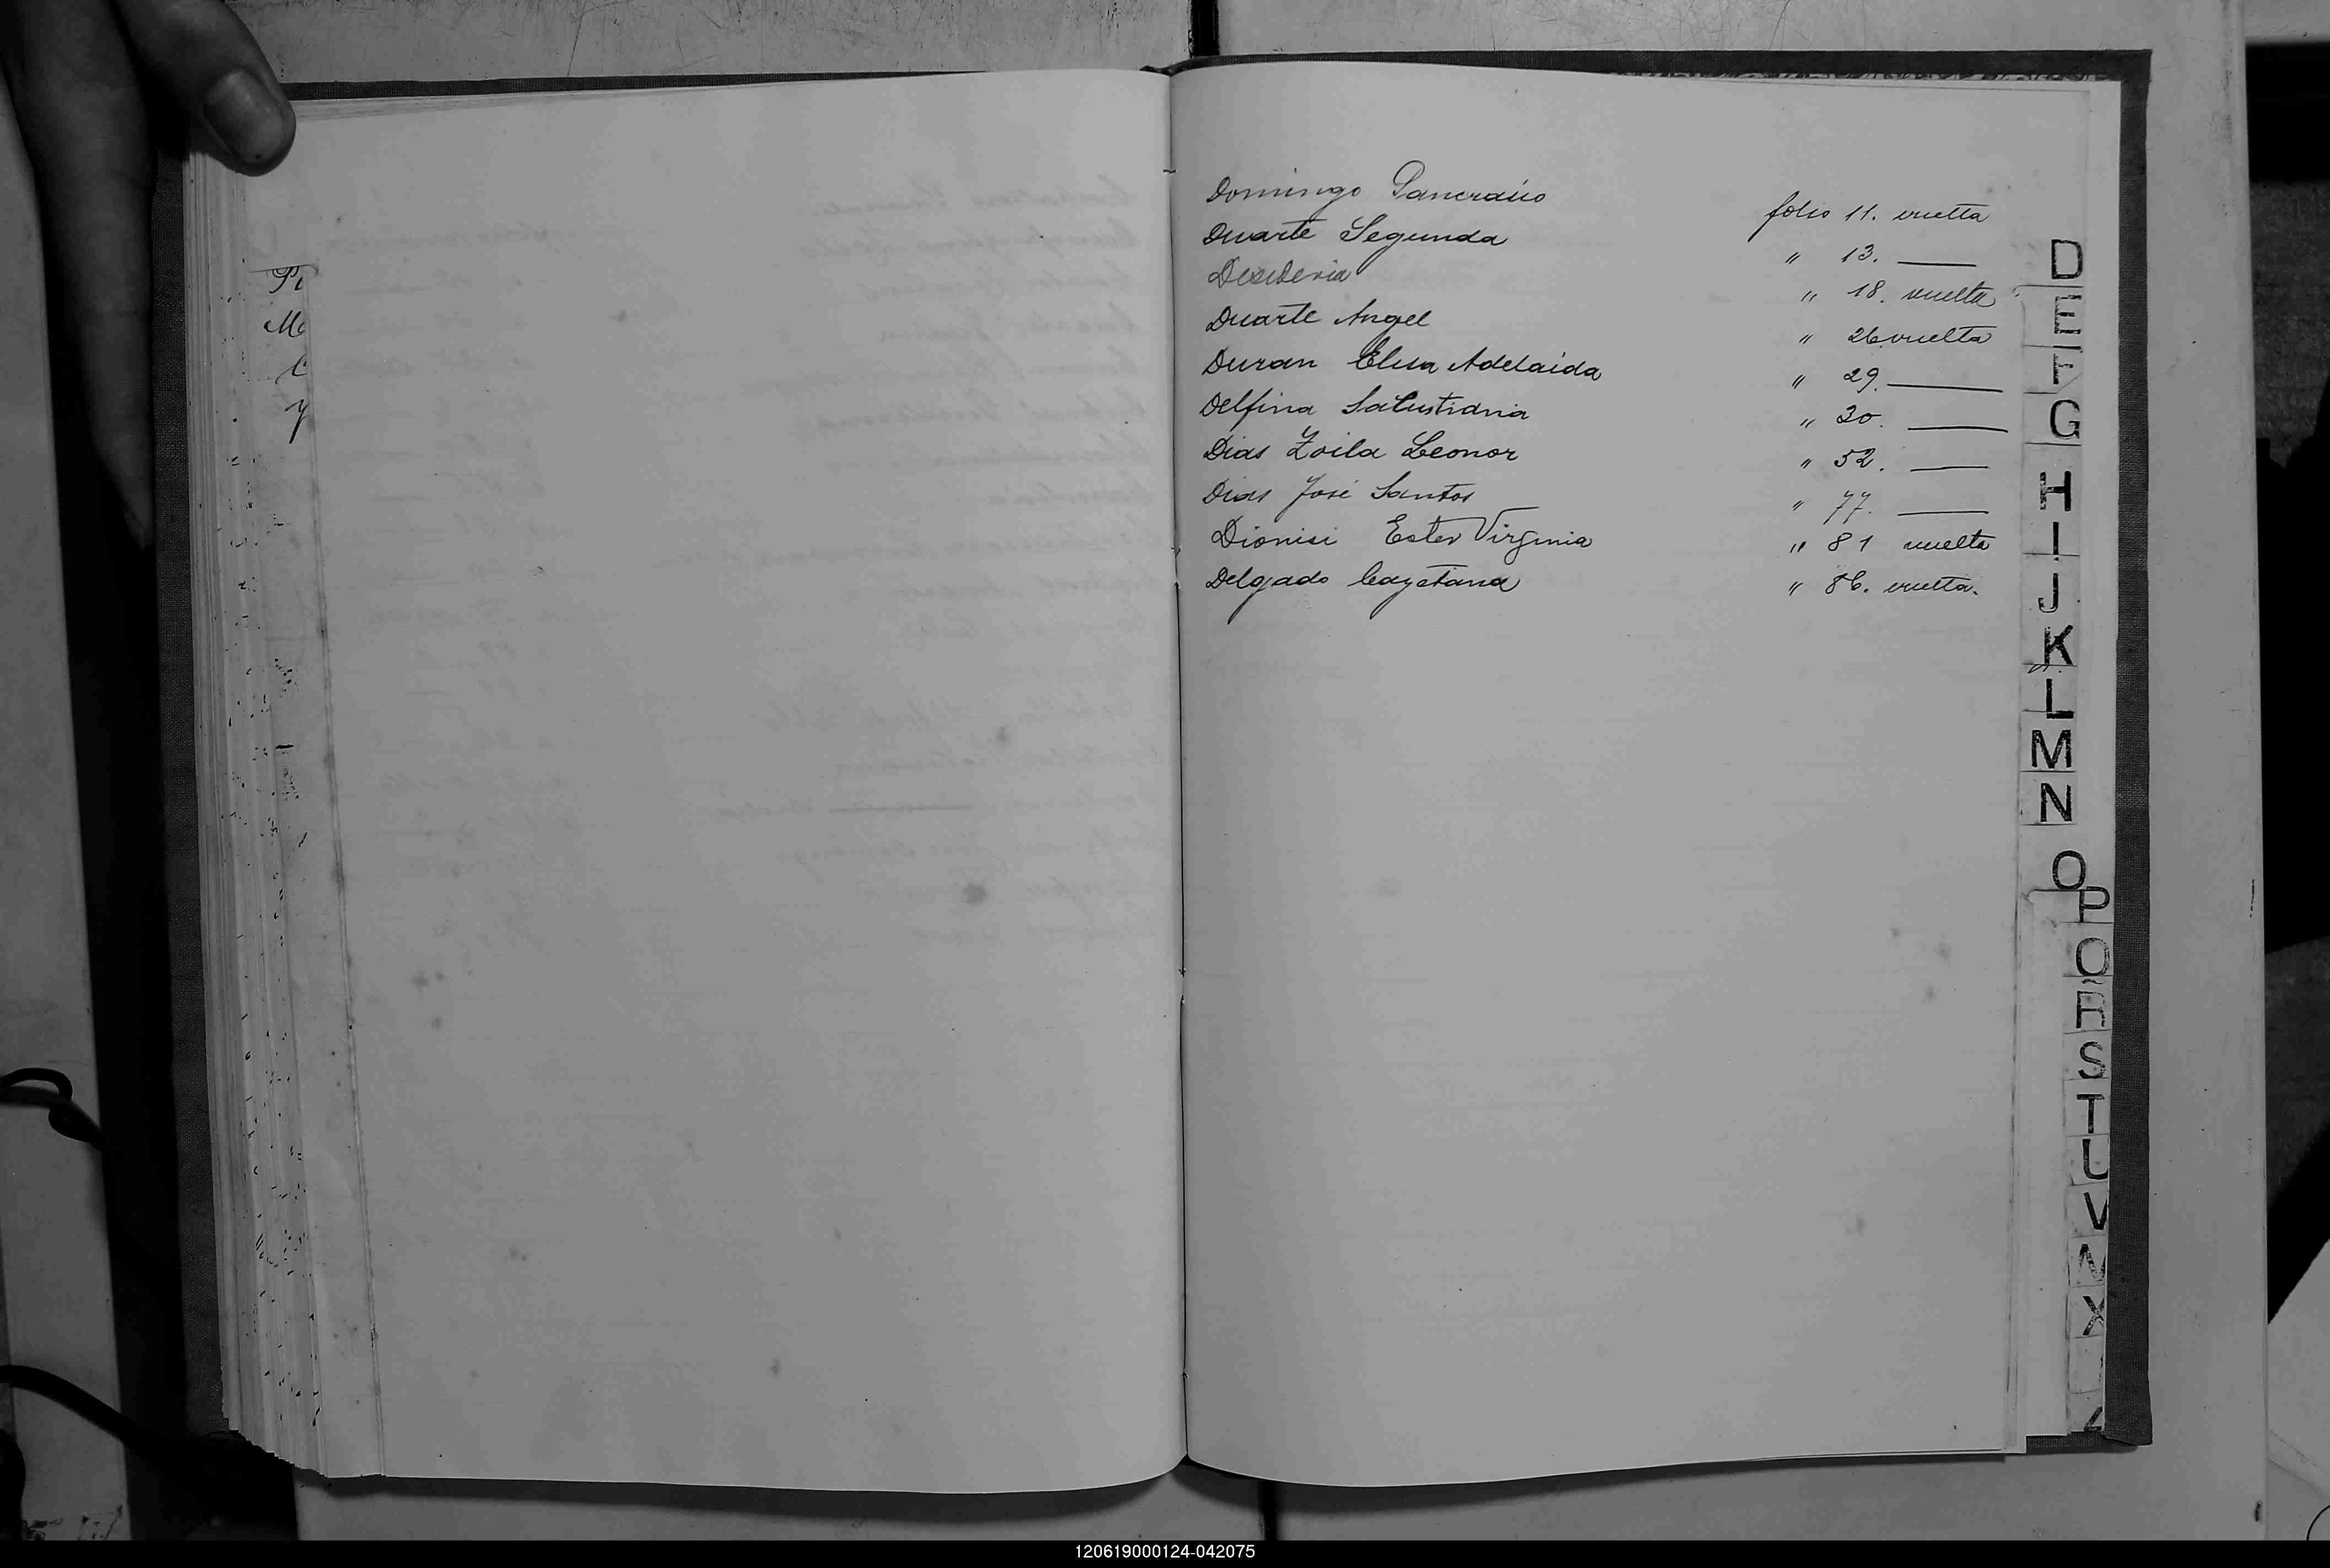 Domingo Pancrasio folio 11. vuelta
Duarte Segunda " 13. ——
Desideria " 18. vuelta
Duarte Angel " 26 vuelta
Duran Elisa Adelaida " 29. ——
Delfina Salustiana " 30. ——
Dias Zoila Leonor " 52. ——
Dias José Santos " 77. ——
Dionisi Ester Virginia " 81 vuelta
Delgado Cayetana " 86. vuelta.
D
E
F
G
H
I
J
K
L
M
N
O
P
Q
R
S
T
U
V
X
120619000124-042075